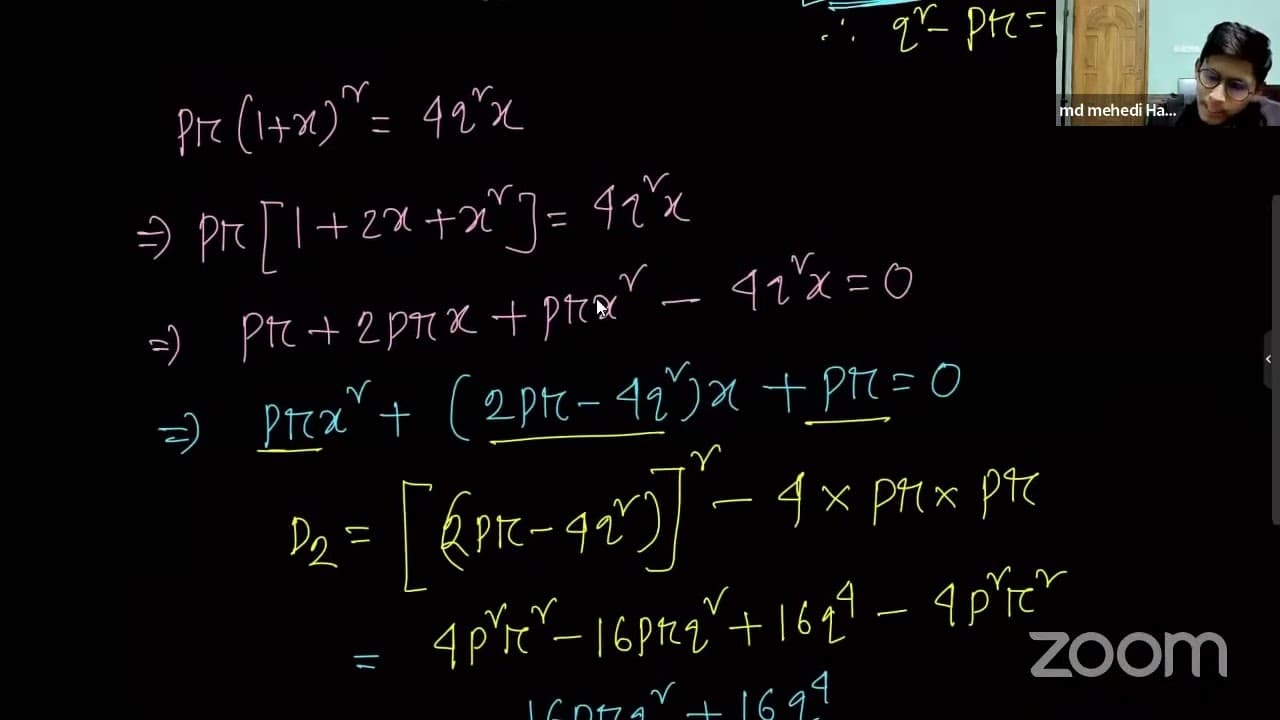 ∴ q² - pr =
md mehedi Ha...
pr(1+x)² = 4q²x
⇒ pr[1+2x+x²] = 4q²x
⇒ pr + 2prx + prx² - 4q²x = 0
⇒ prx² + (2pr - 4q²)x + pr = 0
D₂ = [(2pr - 4q²)]² - 4 × pr × pr
= 4p²r² - 16prq² + 16q⁴ - 4p²r²
16prq² + 16q⁴
zoom